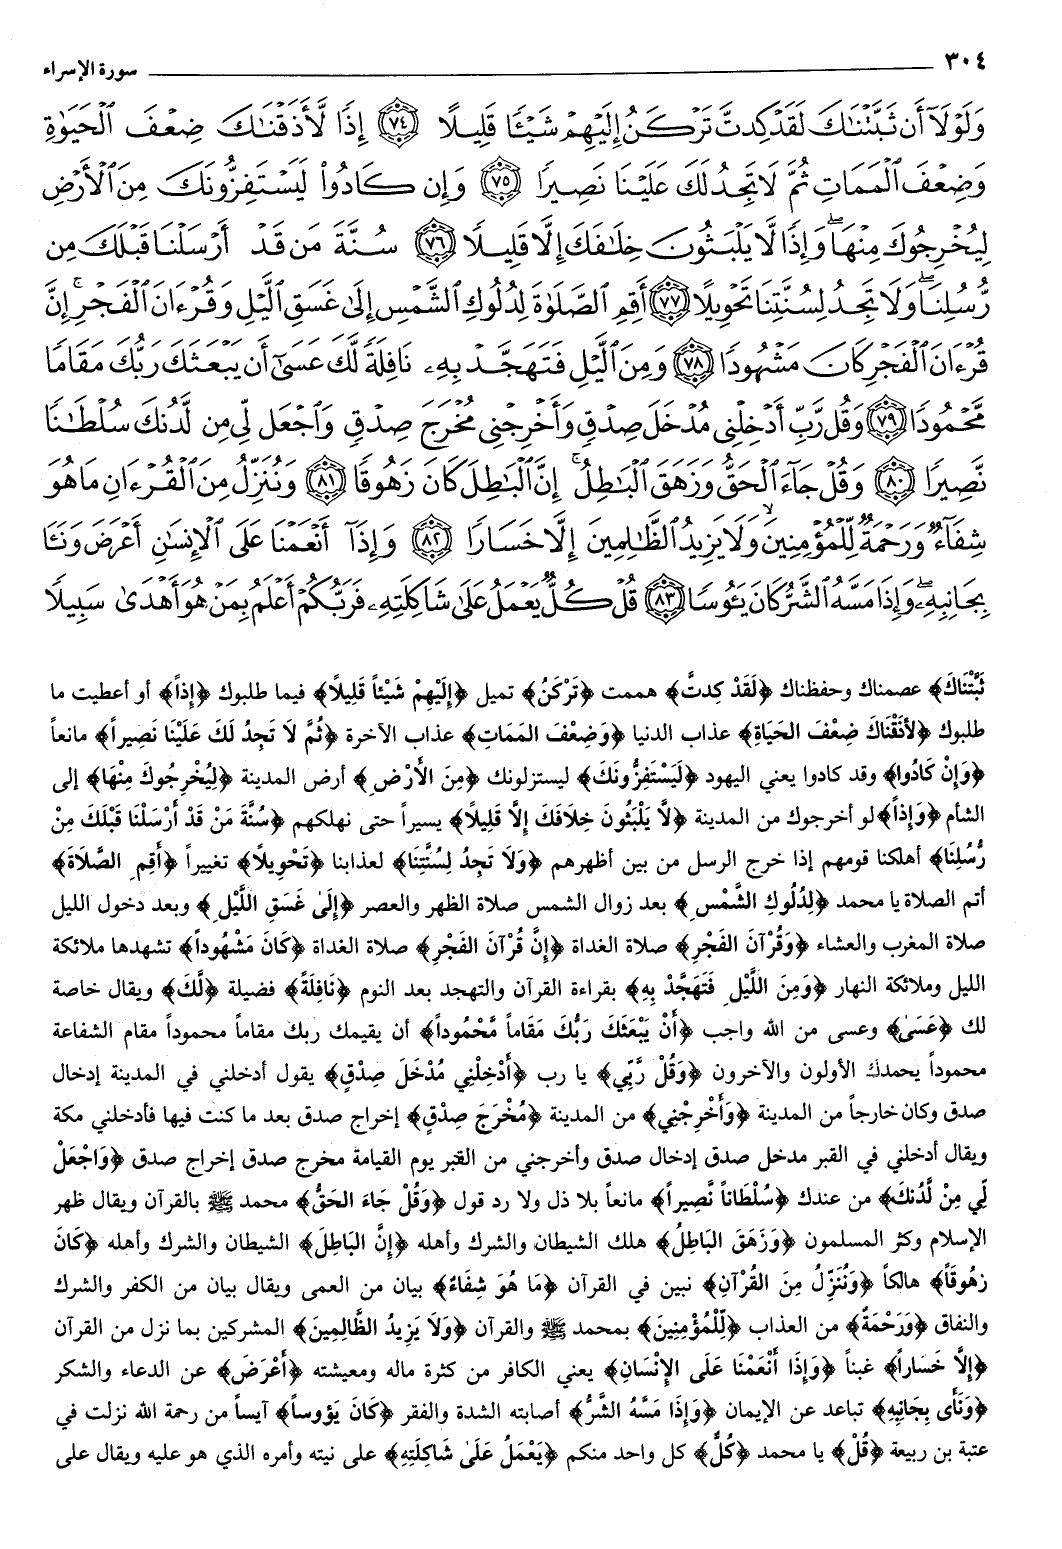 ٣٠٤ سورة الإسراء
وَلَوْلَآ أَن ثَبَّتْنَٰكَ لَقَدْ كِدتَّ تَرْكَنُ إِلَيْهِمْ شَيْـًٔا قَلِيلًا ٧٤ إِذًا لَّأَذَقْنَٰكَ ضِعْفَ ٱلْحَيَوٰةِ
وَضِعْفَ ٱلْمَمَاتِ ثُمَّ لَا تَجِدُ لَكَ عَلَيْنَا نَصِيرًا ٧٥ وَإِن كَادُوا۟ لَيَسْتَفِزُّونَكَ مِنَ ٱلْأَرْضِ
لِيُخْرِجُوكَ مِنْهَا ۖ وَإِذًا لَّا يَلْبَثُونَ خِلَٰفَكَ إِلَّا قَلِيلًا ٧٦ سُنَّةَ مَن قَدْ أَرْسَلْنَا قَبْلَكَ مِن
رُّسُلِنَا ۖ وَلَا تَجِدُ لِسُنَّتِنَا تَحْوِيلًا ٧٧ أَقِمِ ٱلصَّلَوٰةَ لِدُلُوكِ ٱلشَّمْسِ إِلَىٰ غَسَقِ ٱلَّيْلِ وَقُرْءَانَ ٱلْفَجْرِ ۖ إِنَّ
قُرْءَانَ ٱلْفَجْرِ كَانَ مَشْهُودًا ٧٨ وَمِنَ ٱلَّيْلِ فَتَهَجَّدْ بِهِۦ نَافِلَةً لَّكَ عَسَىٰٓ أَن يَبْعَثَكَ رَبُّكَ مَقَامًا
مَّحْمُودًا ٧٩ وَقُل رَّبِّ أَدْخِلْنِى مُدْخَلَ صِدْقٍ وَأَخْرِجْنِى مُخْرَجَ صِدْقٍ وَٱجْعَل لِّى مِن لَّدُنكَ سُلْطَٰنًا
نَّصِيرًا ٨٠ وَقُلْ جَآءَ ٱلْحَقُّ وَزَهَقَ ٱلْبَٰطِلُ ۚ إِنَّ ٱلْبَٰطِلَ كَانَ زَهُوقًا ٨١ وَنُنَزِّلُ مِنَ ٱلْقُرْءَانِ مَا هُوَ
شِفَآءٌ وَرَحْمَةٌ لِّلْمُؤْمِنِينَ ۙ وَلَا يَزِيدُ ٱلظَّٰلِمِينَ إِلَّا خَسَارًا ٨٢ وَإِذَآ أَنْعَمْنَا عَلَى ٱلْإِنسَٰنِ أَعْرَضَ وَنَـَٔا
بِجَانِبِهِۦ ۖ وَإِذَا مَسَّهُ ٱلشَّرُّ كَانَ يَـُٔوسًا ٨٣ قُلْ كُلٌّ يَعْمَلُ عَلَىٰ شَاكِلَتِهِۦ فَرَبُّكُمْ أَعْلَمُ بِمَنْ هُوَ أَهْدَىٰ سَبِيلًا
ثَبَّتْنَاكَ﴾ عصمناك وحفظناك ﴿لَقَدْ كِدتَّ﴾ هممت ﴿تَرْكَنُ﴾ تميل ﴿إِلَيْهِمْ شَيْئاً قَلِيلًا﴾ فيما طلبوك ﴿إِذاً﴾ أو أعطيت ما
طلبوك ﴿لأَذَقْنَاكَ ضِعْفَ الحَيَاةِ﴾ عذاب الدنيا ﴿وَضِعْفَ المَمَاتِ﴾ عذاب الآخرة ﴿ثُمَّ لَا تَجِدُ لَكَ عَلَيْنَا نَصِيراً﴾ مانعاً
﴿وَإِنْ كَادُوا﴾ وقد كادوا يعني اليهود ﴿لَيَسْتَفِزُّونَكَ﴾ ليستزلونك ﴿مِنَ الأَرْضِ﴾ أرض المدينة ﴿لِيُخْرِجُوكَ مِنْهَا﴾ إلى
الشأم ﴿وَإِذاً﴾ لو أخرجوك من المدينة ﴿لَّا يَلْبَثُونَ خِلَافَكَ إِلَّا قَلِيلًا﴾ يسيراً حتى نهلكهم ﴿سُنَّةَ مَنْ قَدْ أَرْسَلْنَا قَبْلَكَ مِنْ
رُّسُلِنَا﴾ أهلكنا قومهم إذا خرج الرسل من بين أظهرهم ﴿وَلَا تَجِدُ لِسُنَّتِنَا﴾ لعذابنا ﴿تَحْوِيلًا﴾ تغييراً ﴿أَقِمِ الصَّلَاةَ﴾
أتم الصلاة يا محمد ﴿لِدُلُوكِ الشَّمْسِ﴾ بعد زوال الشمس صلاة الظهر والعصر ﴿إِلَىٰ غَسَقِ اللَّيْلِ﴾ وبعد دخول الليل
صلاة المغرب والعشاء ﴿وَقُرْآنَ الفَجْرِ﴾ صلاة الغداة ﴿إِنَّ قُرْآنَ الفَجْرِ﴾ صلاة الغداة ﴿كَانَ مَشْهُوداً﴾ تشهدها ملائكة
الليل وملائكة النهار ﴿وَمِنَ اللَّيْلِ فَتَهَجَّدْ بِهِ﴾ بقراءة القرآن والتهجد بعد النوم ﴿نَافِلَةً﴾ فضيلة ﴿لَّكَ﴾ ويقال خاصة
لك ﴿عَسَىٰ﴾ وعسى من الله واجب ﴿أَنْ يَبْعَثَكَ رَبُّكَ مَقَاماً مَّحْمُوداً﴾ أن يقيمك ربك مقاماً محموداً مقام الشفاعة
محموداً يحمدك الأولون والآخرون ﴿وَقُلْ رَّبِّي﴾ يا رب ﴿أَدْخِلْنِي مُدْخَلَ صِدْقٍ﴾ يقول أدخلني في المدينة إدخال
صدق وكان خارجاً من المدينة ﴿وَأَخْرِجْنِي﴾ من المدينة ﴿مُخْرَجَ صِدْقٍ﴾ إخراج صدق بعد ما كنت فيها فأدخلني مكة
ويقال أدخلني في القبر مدخل صدق إدخال صدق وأخرجني من القبر يوم القيامة مخرج صدق إخراج صدق ﴿وَاجْعَلْ
لِّي مِنْ لَّدُنكَ﴾ من عندك ﴿سُلْطَاناً نَّصِيراً﴾ مانعاً بلا ذل ولا رد قول ﴿وَقُلْ جَاءَ الحَقُّ﴾ محمد ﷺ بالقرآن ويقال ظهر
الإسلام وكثر المسلمون ﴿وَزَهَقَ البَاطِلُ﴾ هلك الشيطان والشرك وأهله ﴿إِنَّ البَاطِلَ﴾ الشيطان والشرك وأهله ﴿كَانَ
زَهُوقاً﴾ هالكاً ﴿وَنُنَزِّلُ مِنَ القُرْآنِ﴾ نبين في القرآن ﴿مَا هُوَ شِفَاءٌ﴾ بيان من العمى ويقال بيان من الكفر والشرك
والنفاق ﴿وَرَحْمَةٌ﴾ من العذاب ﴿لِّلْمُؤْمِنِينَ﴾ بمحمد ﷺ والقرآن ﴿وَلَا يَزِيدُ الظَّالِمِينَ﴾ المشركين بما نزل من القرآن
﴿إِلَّا خَسَاراً﴾ غبناً ﴿وَإِذَا أَنْعَمْنَا عَلَى الإِنْسَانِ﴾ يعني الكافر من كثرة ماله ومعيشته ﴿أَعْرَضَ﴾ عن الدعاء والشكر
﴿وَنَأَى بِجَانِبِهِ﴾ تباعد عن الإيمان ﴿وَإِذَا مَسَّهُ الشَّرُّ﴾ أصابته الشدة والفقر ﴿كَانَ يَؤوساً﴾ آيساً من رحمة الله نزلت في
عتبة بن ربيعة ﴿قُلْ﴾ يا محمد ﴿كُلٌّ﴾ كل واحد منكم ﴿يَعْمَلُ عَلَىٰ شَاكِلَتِهِ﴾ على نيته وأمره الذي هو عليه ويقال على